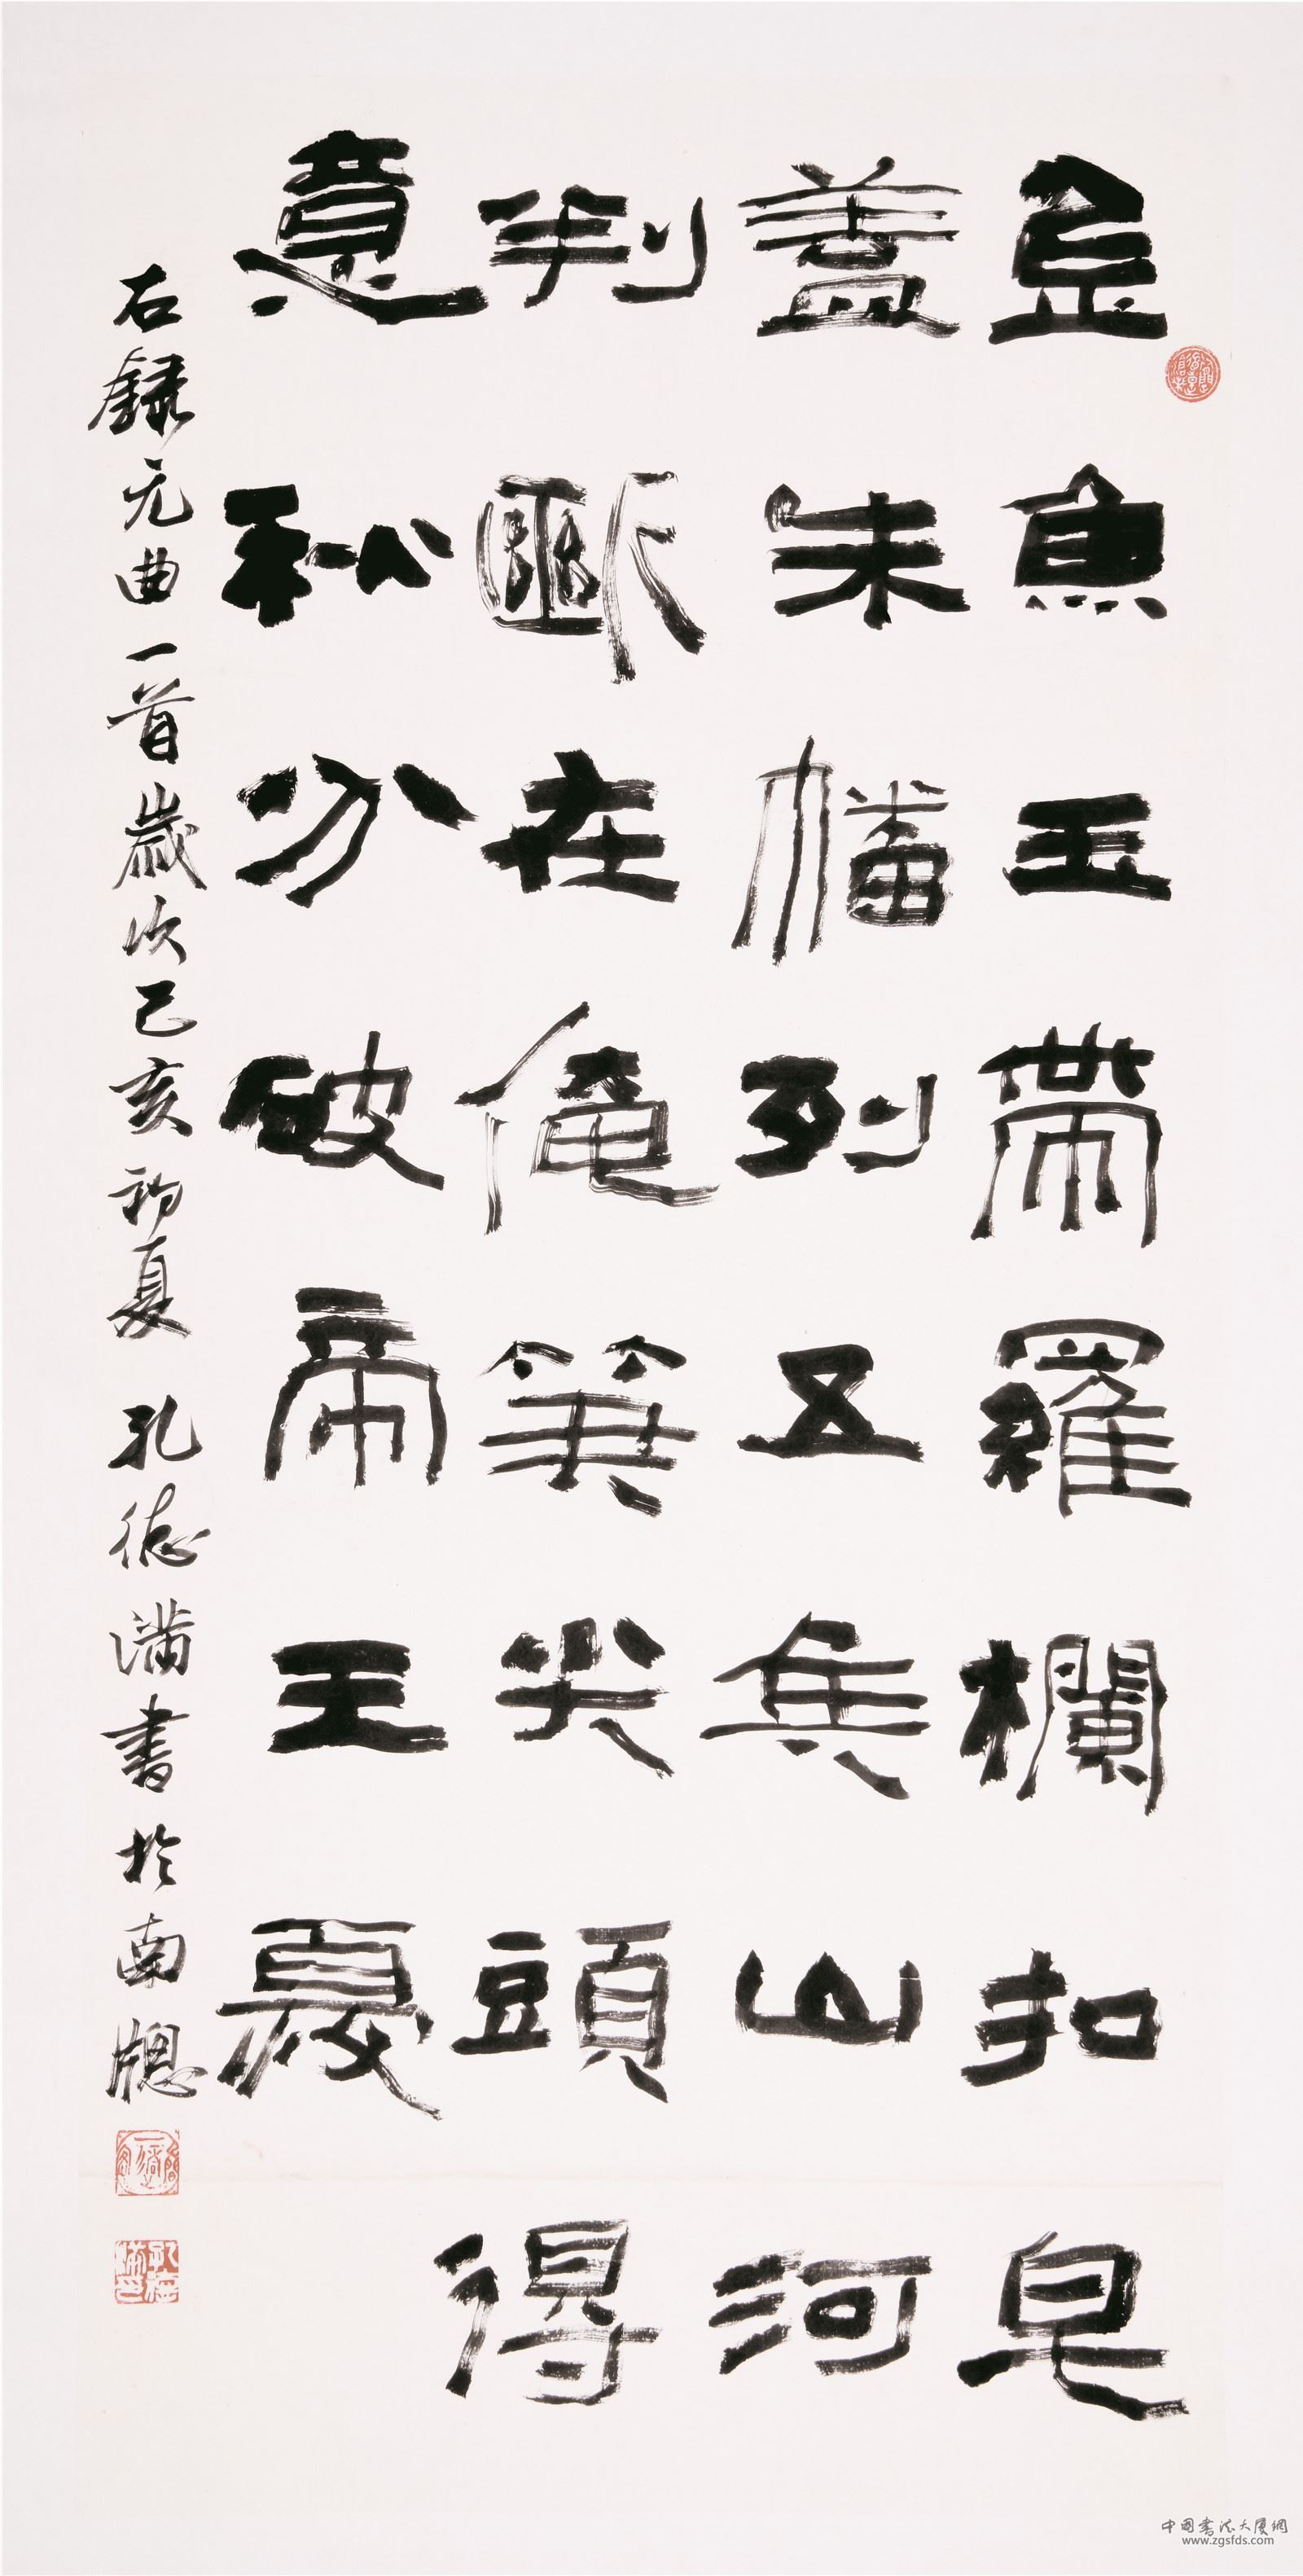 金魚玉帶羅欄扣皂
蓋朱幡列五矦山河
判斷在俺筆尖頭得
意秋分破帝王憂
右錄元曲一首歲次己亥初夏 孔德滿書於南牕
中國書法大廈網
www.zgsfds.com